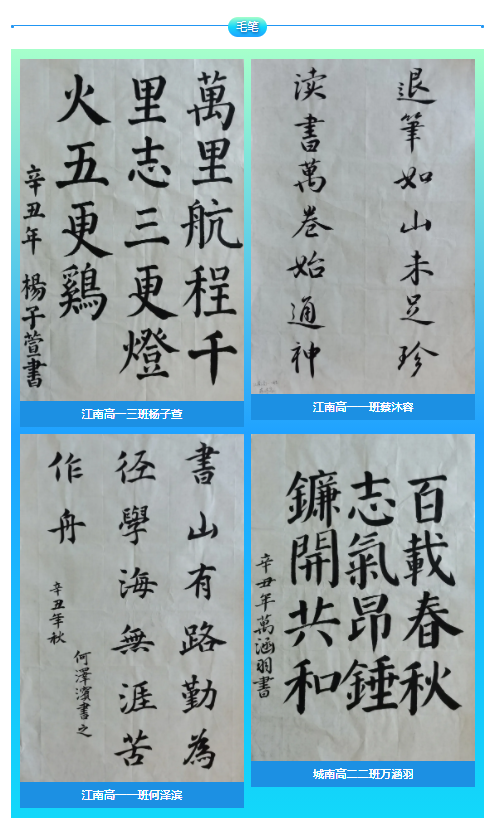 毛笔
萬里航程千
里志三更燈
火五更鷄
辛丑年 楊子萱書
江南高一三班杨子萱
退筆如山未足珍
读書萬卷始通神
江南高一一班蔡沐容
書山有路勤為
径學海無涯苦
作舟
辛丑年秋
何澤濱書之
江南高一一班何泽滨
百載春秋
志氣昂錘
鐮開共和
辛丑年萬涵羽書
城南高二二班万涵羽